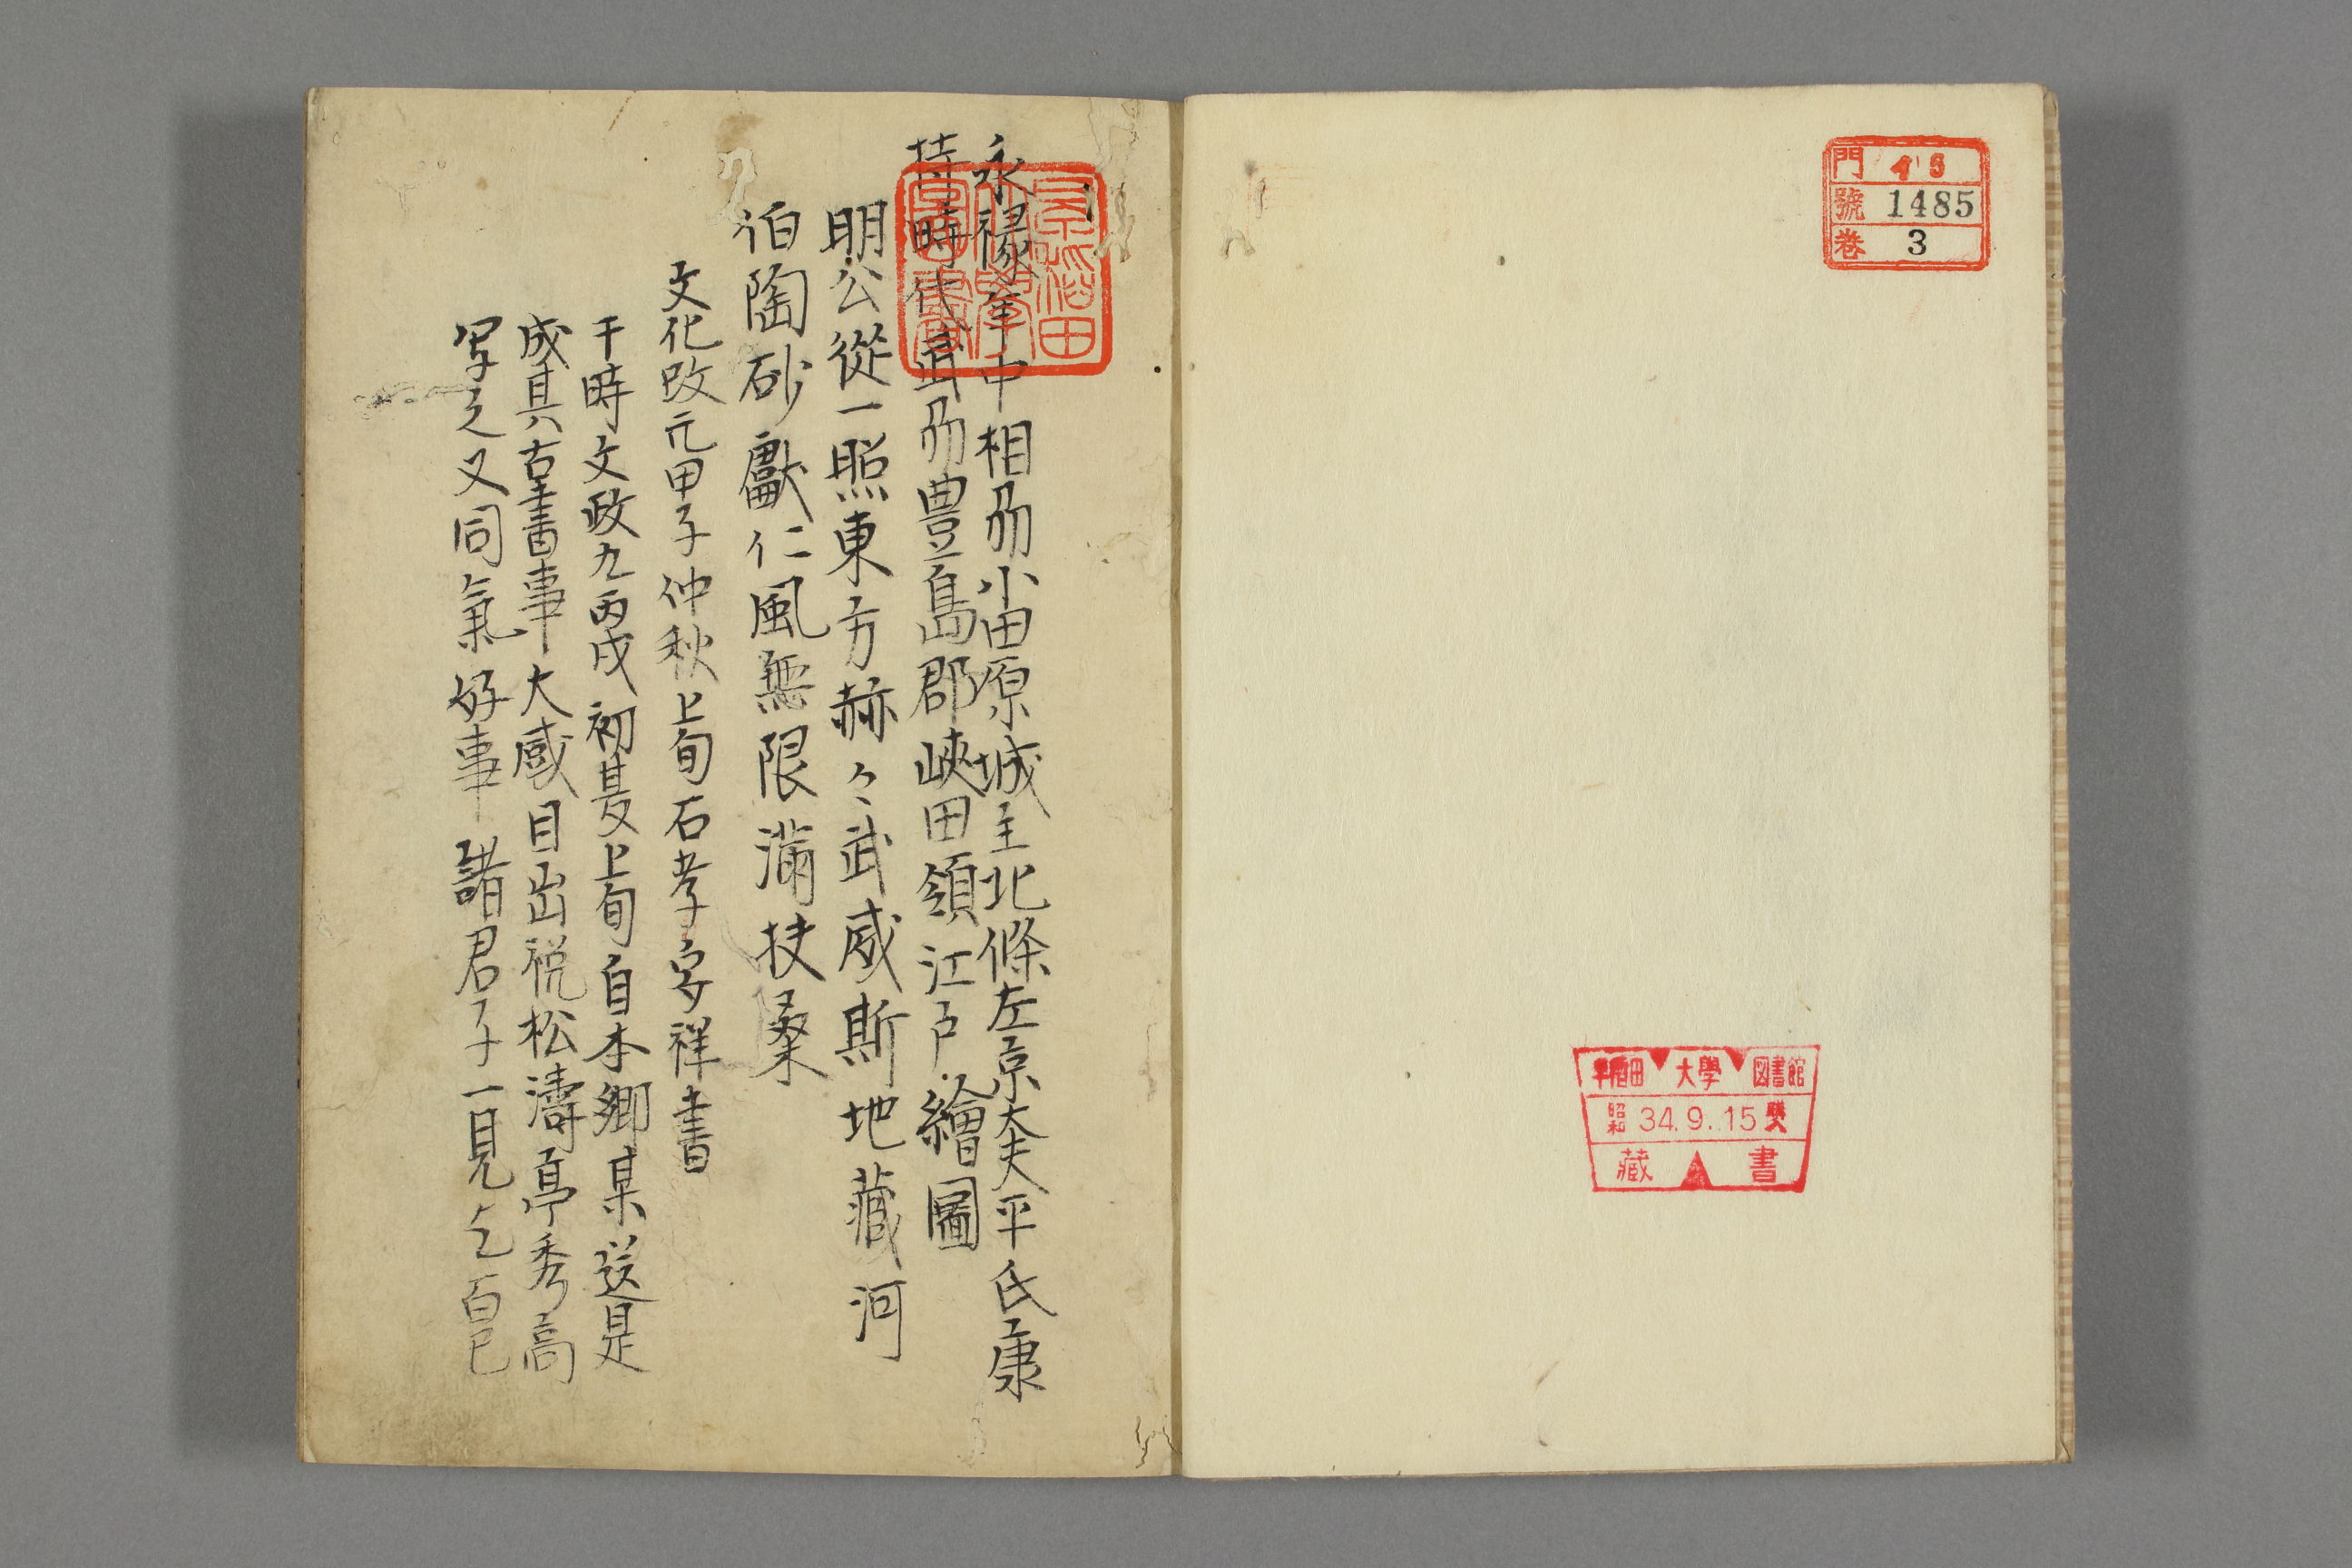 門 45
號 1485
巻 3
早稲田 大學 図書館
昭和 34.9.15 購入
藏書
早稲田大學圖書
永禄年中相刕小田原城主北條左京太夫平氏康
持時代武刕豊島郡峽田領江戸繪圖
明公從一照東方赫々武威斯地藏河
伯陶砂獻仁風無限滿扶桑
文化改元甲子仲秋上旬石孝字祥書
干時文政九丙戌初夏上旬自本郷某送是
成其古書事大感目出祝松濤亭秀高
写之又同氣好事諸君子一見之